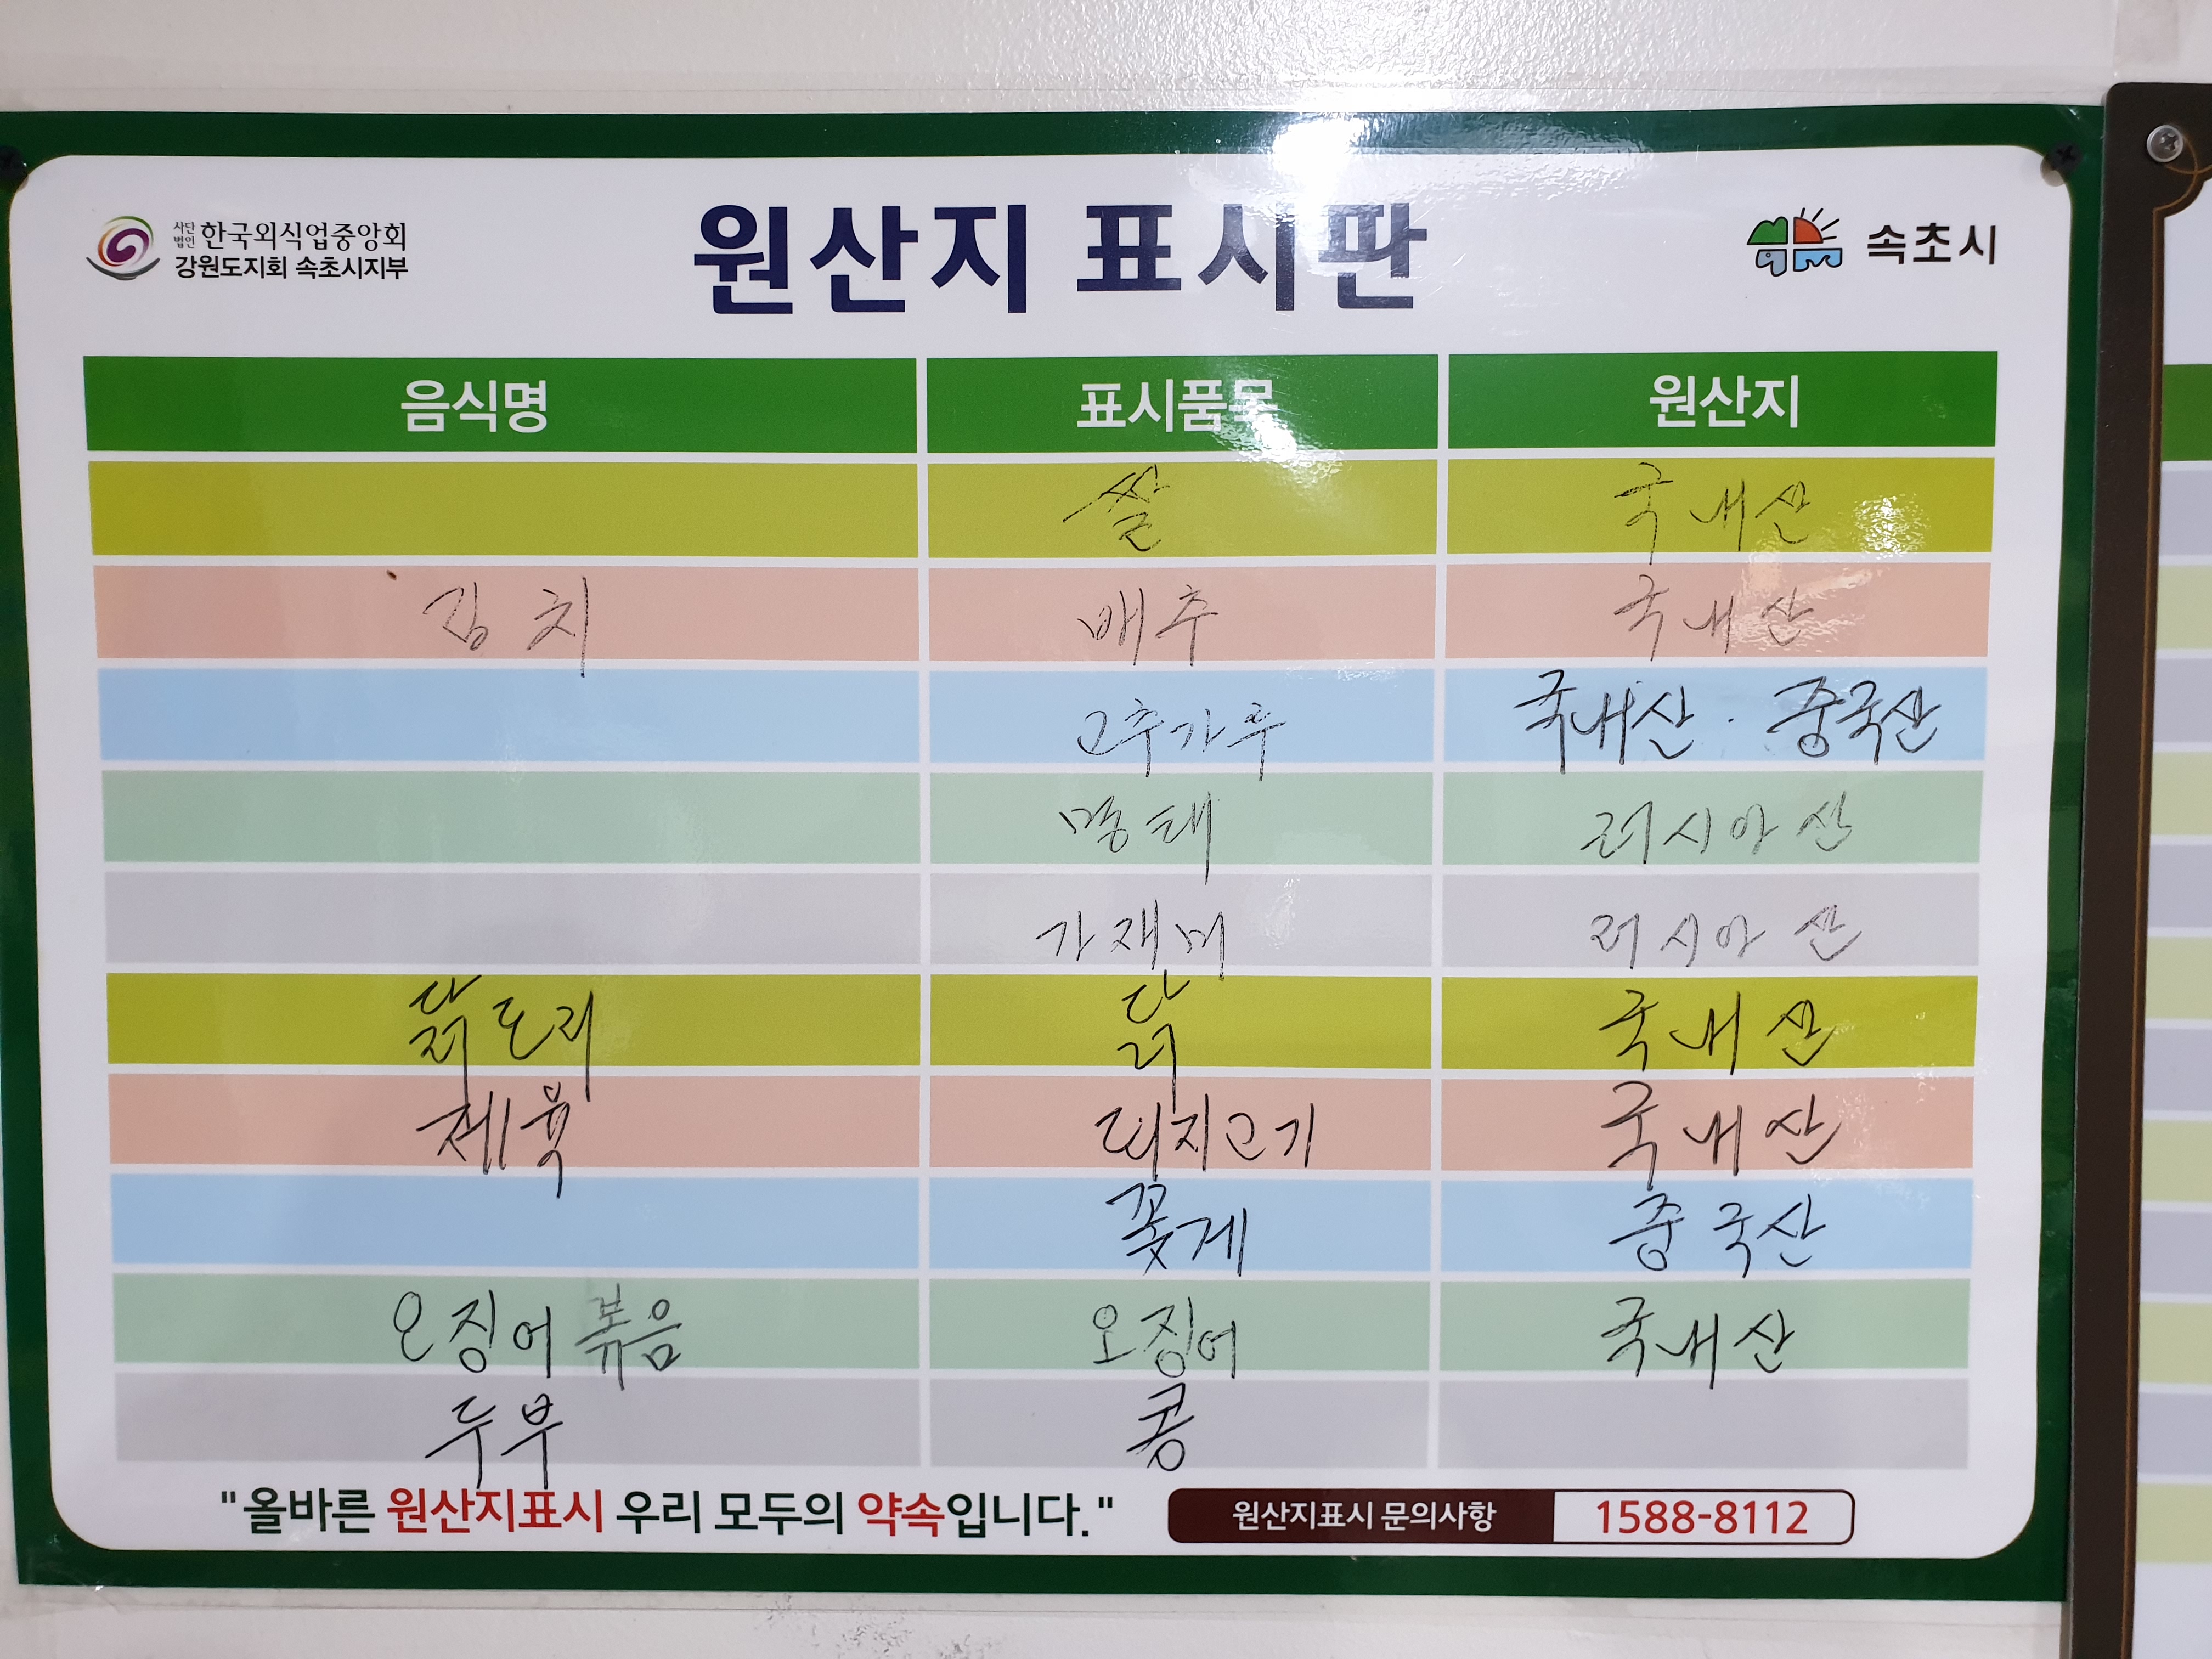 사단법인 한국외식업중앙회
강원도지회 속초시지부
원산지 표시판
속초시
음식명 표시품목 원산지
쌀 국내산
김치 배추 국내산
고추가루 국내산 · 중국산
명태 러시아산
가재미 러시아산
닭도리 닭 국내산
제육 돼지고기 국내산
꽃게 중국산
오징어볶음 오징어 국내산
두부 콩
"올바른 원산지표시 우리 모두의 약속입니다."
원산지표시 문의사항 1588-8112